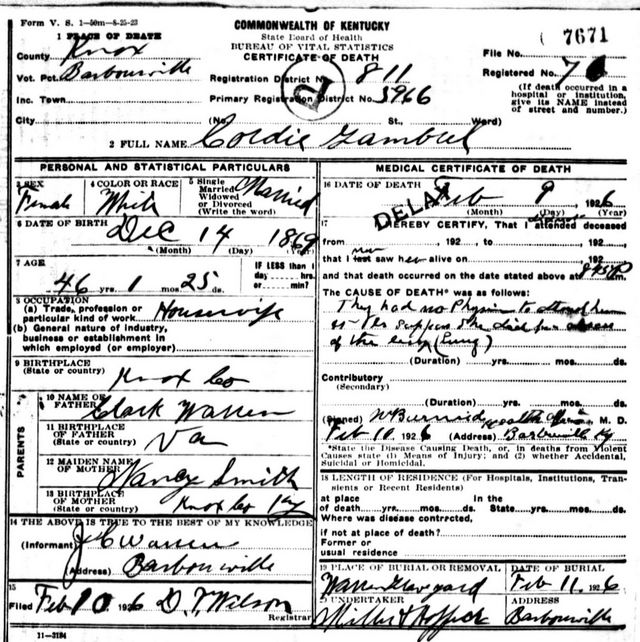 Form V. S. 1-50m-8-25-23
COMMONWEALTH OF KENTUCKY
State Board of Health
BUREAU OF VITAL STATISTICS
CERTIFICATE OF DEATH
7671
1 PLACE OF DEATH
County Knox
File No.
Vot. Pct. Barbourville
Registration District No. 811
Registered No.
Inc. Town
Primary Registration District No. 5966
(If death occurred in a hospital or institution, give its NAME instead of street and number.)
City (No. St., Ward)
2 FULL NAME Goldie Gambrel
PERSONAL AND STATISTICAL PARTICULARS
3 SEX Female
4 COLOR OR RACE White
5 Single Married Widowed or Divorced (Write the word) Married
6 DATE OF BIRTH Dec 14 1869
(Month) (Day) (Year)
7 AGE 46 yrs. 1 mos. 25 ds.
IF LESS than 1 day....hrs. or....min?
8 OCCUPATION
(a) Trade, profession or particular kind of work Housewife
(b) General nature of industry, business or establishment in which employed (or employer)
9 BIRTHPLACE
(State or country) Knox Co
PARENTS
10 NAME OF FATHER Clark Warren
11 BIRTHPLACE OF FATHER (State or country) Va
12 MAIDEN NAME OF MOTHER Nancy Smith
13 BIRTHPLACE OF MOTHER (State or country) Knox Co Ky
14 THE ABOVE IS TRUE TO THE BEST OF MY KNOWLEDGE
(Informant) J C Warren
(Address) Barbourville
15
Filed Feb 10 1926 D. T. Wilson
Registrar
11-3184
MEDICAL CERTIFICATE OF DEATH
16 DATE OF DEATH Feb 9 1926
(Month) (Day) (Year)
DELAYED
17 I HEREBY CERTIFY, That I attended deceased
from 192 to 192
that I last saw her alive on 192
and that death occurred on the date stated above at
The CAUSE OF DEATH* was as follows:
They had no to
of the (Lung)
(Duration) yrs. mos. ds.
Contributory
(Secondary)
(Duration) yrs. mos. ds.
(Signed) M. D.
Feb 10 1926 (Address) Barbourville Ky
*State the Disease Causing Death, or, in deaths from Violent Causes state (1) Means of Injury; and (2) whether Accidental, Suicidal or Homicidal.
18 LENGTH OF RESIDENCE (For Hospitals, Institutions, Transients or Recent Residents)
at place of death yrs. mos. ds. In the State yrs. mos. ds.
Where was disease contrcted,
if not at place of death?
Former or
usual residence
19 PLACE OF BURIAL OR REMOVAL Warren Graveyard
DATE OF BURIAL Feb 11 1926
20 UNDERTAKER
ADDRESS Barbourville